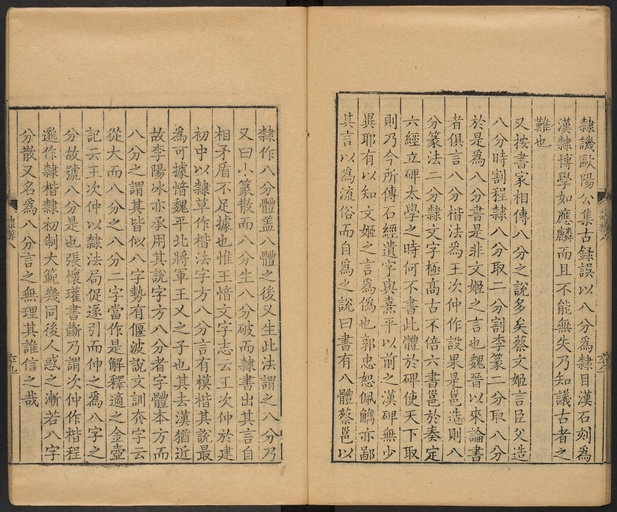 隸譏歐陽公集古錄誤以八分為隸目漢石刻為
漢隸博學如應麟而且不能無失乃知議古者之
難也
又按書家相傳八分之說多矣蔡文姬言臣父造
八分時割程隸八分取二分割李篆二分取八分
於是為八分書是非文姬之言也魏晉以來論書
者俱言八分楷法為王次仲作設果是邕造則八
分篆法二分隸文字極高古不倍六書邕於奏定
六經立碑太學之時何不書此體於碑使天下取
則乃今所傳石經遺字與熹平以前之漢碑無少
異耶有以知文姬之言為偽也郭忠恕佩觿亦鄙
其言以為流俗而自為之說曰書有八體蔡邕以
隸作八分體蓋八體之後又生此法謂之八分乃
又曰小篆散而八分生八分破而隸書出其言自
相矛盾不足據也惟王愔文字志云王次仲於建
初中以隸草作楷法字方八分言有模楷其說最
為可據愔魏平北將軍王乂之子也其去漢猶近
故李陽冰亦承用其說字方八分者字體本方而
八分之謂其皆似八字勢有偃波說文訓夰字云
從大而八分之八分二字當作是解釋適之金壺
記云王次仲以隸法局促遂引而伸之為八字之
分故號八分是也張懷瓘書斷乃謂次仲作楷程
邈作隸楷隸初制大範幾同後人惑之漸若八字
分散又名為八分言之無理其誰信之哉